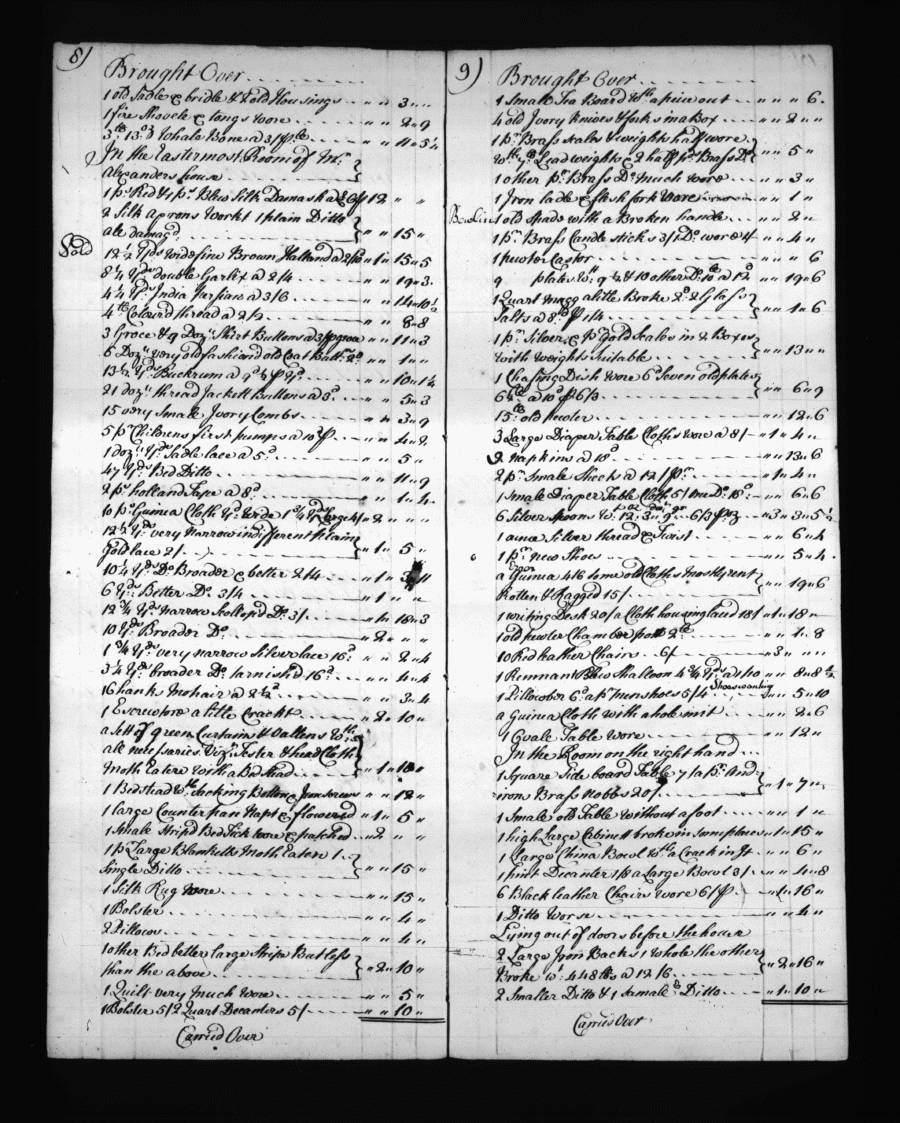 8)
Brought Over
1 old Sadle & bridle & 2 old Housings " " 3 "
1 fire Shovele & tongs wore " " 2 " 9
3 lb 13 oz Whale Bone a 3/ p lb " 11 " 5 1/4
In the Eastermost Room of Mr
Alexanders house
1 ps Red & 1 ps Blew Silk Damask 12 " "
2 Silk Aprons Workt 1 plain Ditto
ale damagd " " 15 "
Sold
12 1/2 Yds wide fine Brown Holland a 2/6 " 1 " 15 " 5
8 1/4 Yds double Garlix a 2/4 " 19 " 3
4 1/4 Yds India Persian a 3/6 " " 14 " 10 1/2
4 lb Colourd thread a 2/2 " " 8 " 8
3 Groce & 9 Dozn Shirt Buttons a 3/ pgroce " " 11 " 3
6 Dozn very old fashiand old Coat Buttns 2d " " 1 " "
13 1/2 Yds Buckrum a 9d p Yd " " 10 " 1 1/2
21 dozn thread Jackett Buttons a 3d " " 5 " 3
15 very Smale Ivory Combs " " 3 " 9
5 pr Childrens first pumps a 10d p " " 4 " 2
1 dozn Yds Sadle lace a 5d " " 5 "
47 Yds Bed Ditto " " 11 " 9
2 ps holland Tape a 8d " " 1 " 4
10 ps Guinea Cloth " 2 " " "
12 1/2 Yds very narrow indifferent plain
Gold lace 2/ " 1 " 5 "
10 1/4 Yds Do Broader & better 2/4 " 1 "
6 Yds Better Do 3/4 " 1 " "
12 3/4 Yds narrow Scollop'd Do 3/ " 1 " 18 " 3
10 Yds Broader Do " 2 " " "
1 3/4 Yds very narrow Silver lace 16d " " 2 " 4
3 1/4 Yds broader Do tarnish'd 16d " " 4 " 4
16 hanks Mohair a 2 1/2d " " 3 " 4
1 Escrutore a litle Crackt " 2 " 10 "
a Sett of green Curtains & Vallens Wth
ale necessaries Vizt Tester & head Cloth
Moth Eaten with a Bedstead " 1 " 10 "
1 Bedstead Wth Sacking Bottom & Iron screws " " 12 "
1 large Counterpan Napt & flowered " 1 " 5 "
1 Smale Strip'd Bed Tick wore & patched " 2 " "
1 pr Large Blanketts Moth Eaten 1
Single Ditto " " 15 "
1 Silk Rug wore " " 15 "
1 Bolster " " 4 "
2 Pillows " " 4 "
1 other Bed better large Stripe But less
than the above " 2 " 10 "
1 Quilt very much wore " " 5 "
1 Bolster 5/ 2 Quart Decanters 5/ " " 10 "
Carried Over
9)
Brought Over
1 Smale Tea Board Wth a piece out " " " 6
4 old Ivory knives & forks in a Box " " 2 " "
1 pr Brass Scales & weights half wore
Wth Lead weights & 2 half pd Brass Do " " 5 "
1 other pr Brass Do much wore " " 3 "
1 Iron ladle & flesh fork wore " " 1 "
1 old Spade with a Broken handle " " 2 "
1 pr Brass Candlesticks 3/ 1 Do wore " " 4 "
1 pewter Castor " " " 6
9 plates Wt 9 1/2 & 10 other Do 10 lb a 12d " " 19 " 6
1 Quart mugg a litle Broke 2d 2 Glass
Salts a 8d p " " 1 " 6
1 pr Silver & 1 pr Gold Scales in 2 Boxes
with weights Suitable " " 13 " "
1 Chafing Dish wore 6d Seven old plates
6 1/4 lb a 10d p 6/3 " " 6 " 9
15 lb old pewter " " 12 " 6
3 Large Diaper Table Cloths wore a 8/ " 1 " 4 "
9 Napkins a 18d " " 13 " 6
2 pr Smale Sheets a 12/ pr " 1 " 4 "
1 Smale Diaper Table Cloth 5/ one Do 18d " " 6 " 6
6 Silver Spoons Wt 12 oz 3 dwt 9 gr 6/3 p oz " 3 " 3 "
1 ounce Silver thread & Twist " " 6 " 4
1 pr new Shoes " " 5 " 4
a Guinea 4/6 Some old Cloths mostly rent
Rotten & Ragged 15/ " " 19 " 6
1 writing Desk 20/ a Cloth housing laced 18/ " 1 " 18 "
1 old pewter Chamber pott 2 lb " " 1 " 8
10 Red leather Chairs 6/ " 3 " " "
1 Remnant Blew Shalloon 4 3/4 Yds " " 8 " 8
1 Pillowber 6d a pr men shoes 5/4 " " 5 " 10
a Guinea Cloth with a hole in it " " 2 " 6
1 Ovale Table wore " " 12 "
In the Room on the right hand
1 Square Side board Table 7/ a pr And
irons Brass Nobbs 20/ " 1 " 7 "
1 Smale old Table without a foot " " 1 "
1 high Large Cabinett broke in some places " 1 " 15 "
1 Large China Bowl Wth a Crack in It " " 6 "
1 pint Decanter 1/8 a Large Bowl 3/ " " 4 " 8
6 Black leather Chairs wore 6/ p " 1 " 16 "
1 Ditto Worse " " 4 "
Lying out of doors before the house
2 Large Iron Backs 1 whole the other
Broke Wt 448 lbs a 12/6 " 2 " 16 "
2 Smaller Ditto & 1 Smale Do Ditto " 1 " 10 "
Carried Over